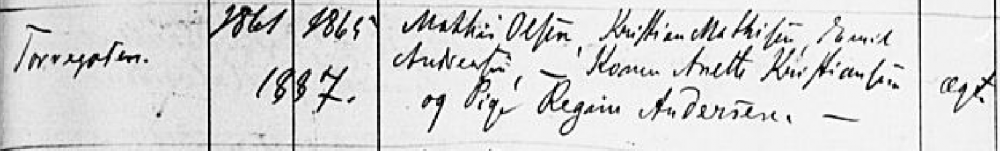 1861 1865 Mathias Olsen, Kristian Mathisen,
Torvegaten. Andersen, — Konen Anette Kristiansen
1887. og Pige Regine Andersen. — ægt.